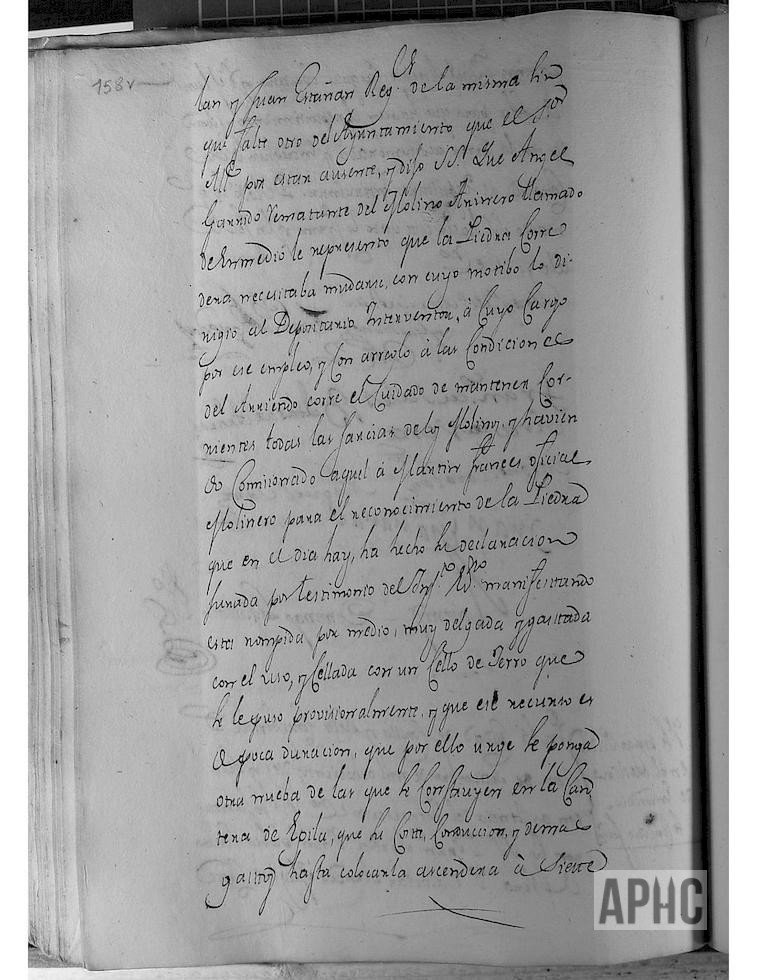 158v
lan y Juan Estañan Reg.es de la misma sin
que falte otro del Ayuntamiento que el S.or
Al.e por estar ausente, y dijo SS.a Que Angel
Garrido rematante del Molino Arinero llamado
de Enmedio le represento que la Piedra Corre
dera necesitaba mudarse, con cuyo motibo lo di-
rigio al Depositario Interventor, à Cuyo Cargo
por ese empleo, y Con arreglo à las Condiciones
del Arriendo corre el Cuidado de mantener Cor-
rientes todas las farcias de los Molinos, y havien
do Comisionado aquel à Martin frances oficial
Molinero para el reconocimiento de la Piedra
que en el dia hay, ha hecho su declaracion
Jurada por testimonio del Inf.to Ess.no manifestando
estar rompida por medio, muy delgada y gastada
con el uso, y Cellada con un Cello de Ferro que
se le puso provisionalmente, y que ese recurso es
de poca duracion, que por ello urge se ponga
otra nueba de las que se Construyen en la Can
tera de Epila, que su Coste, Conduccion, y demas
gastos hasta colocarla ascendera à Siette
APHC